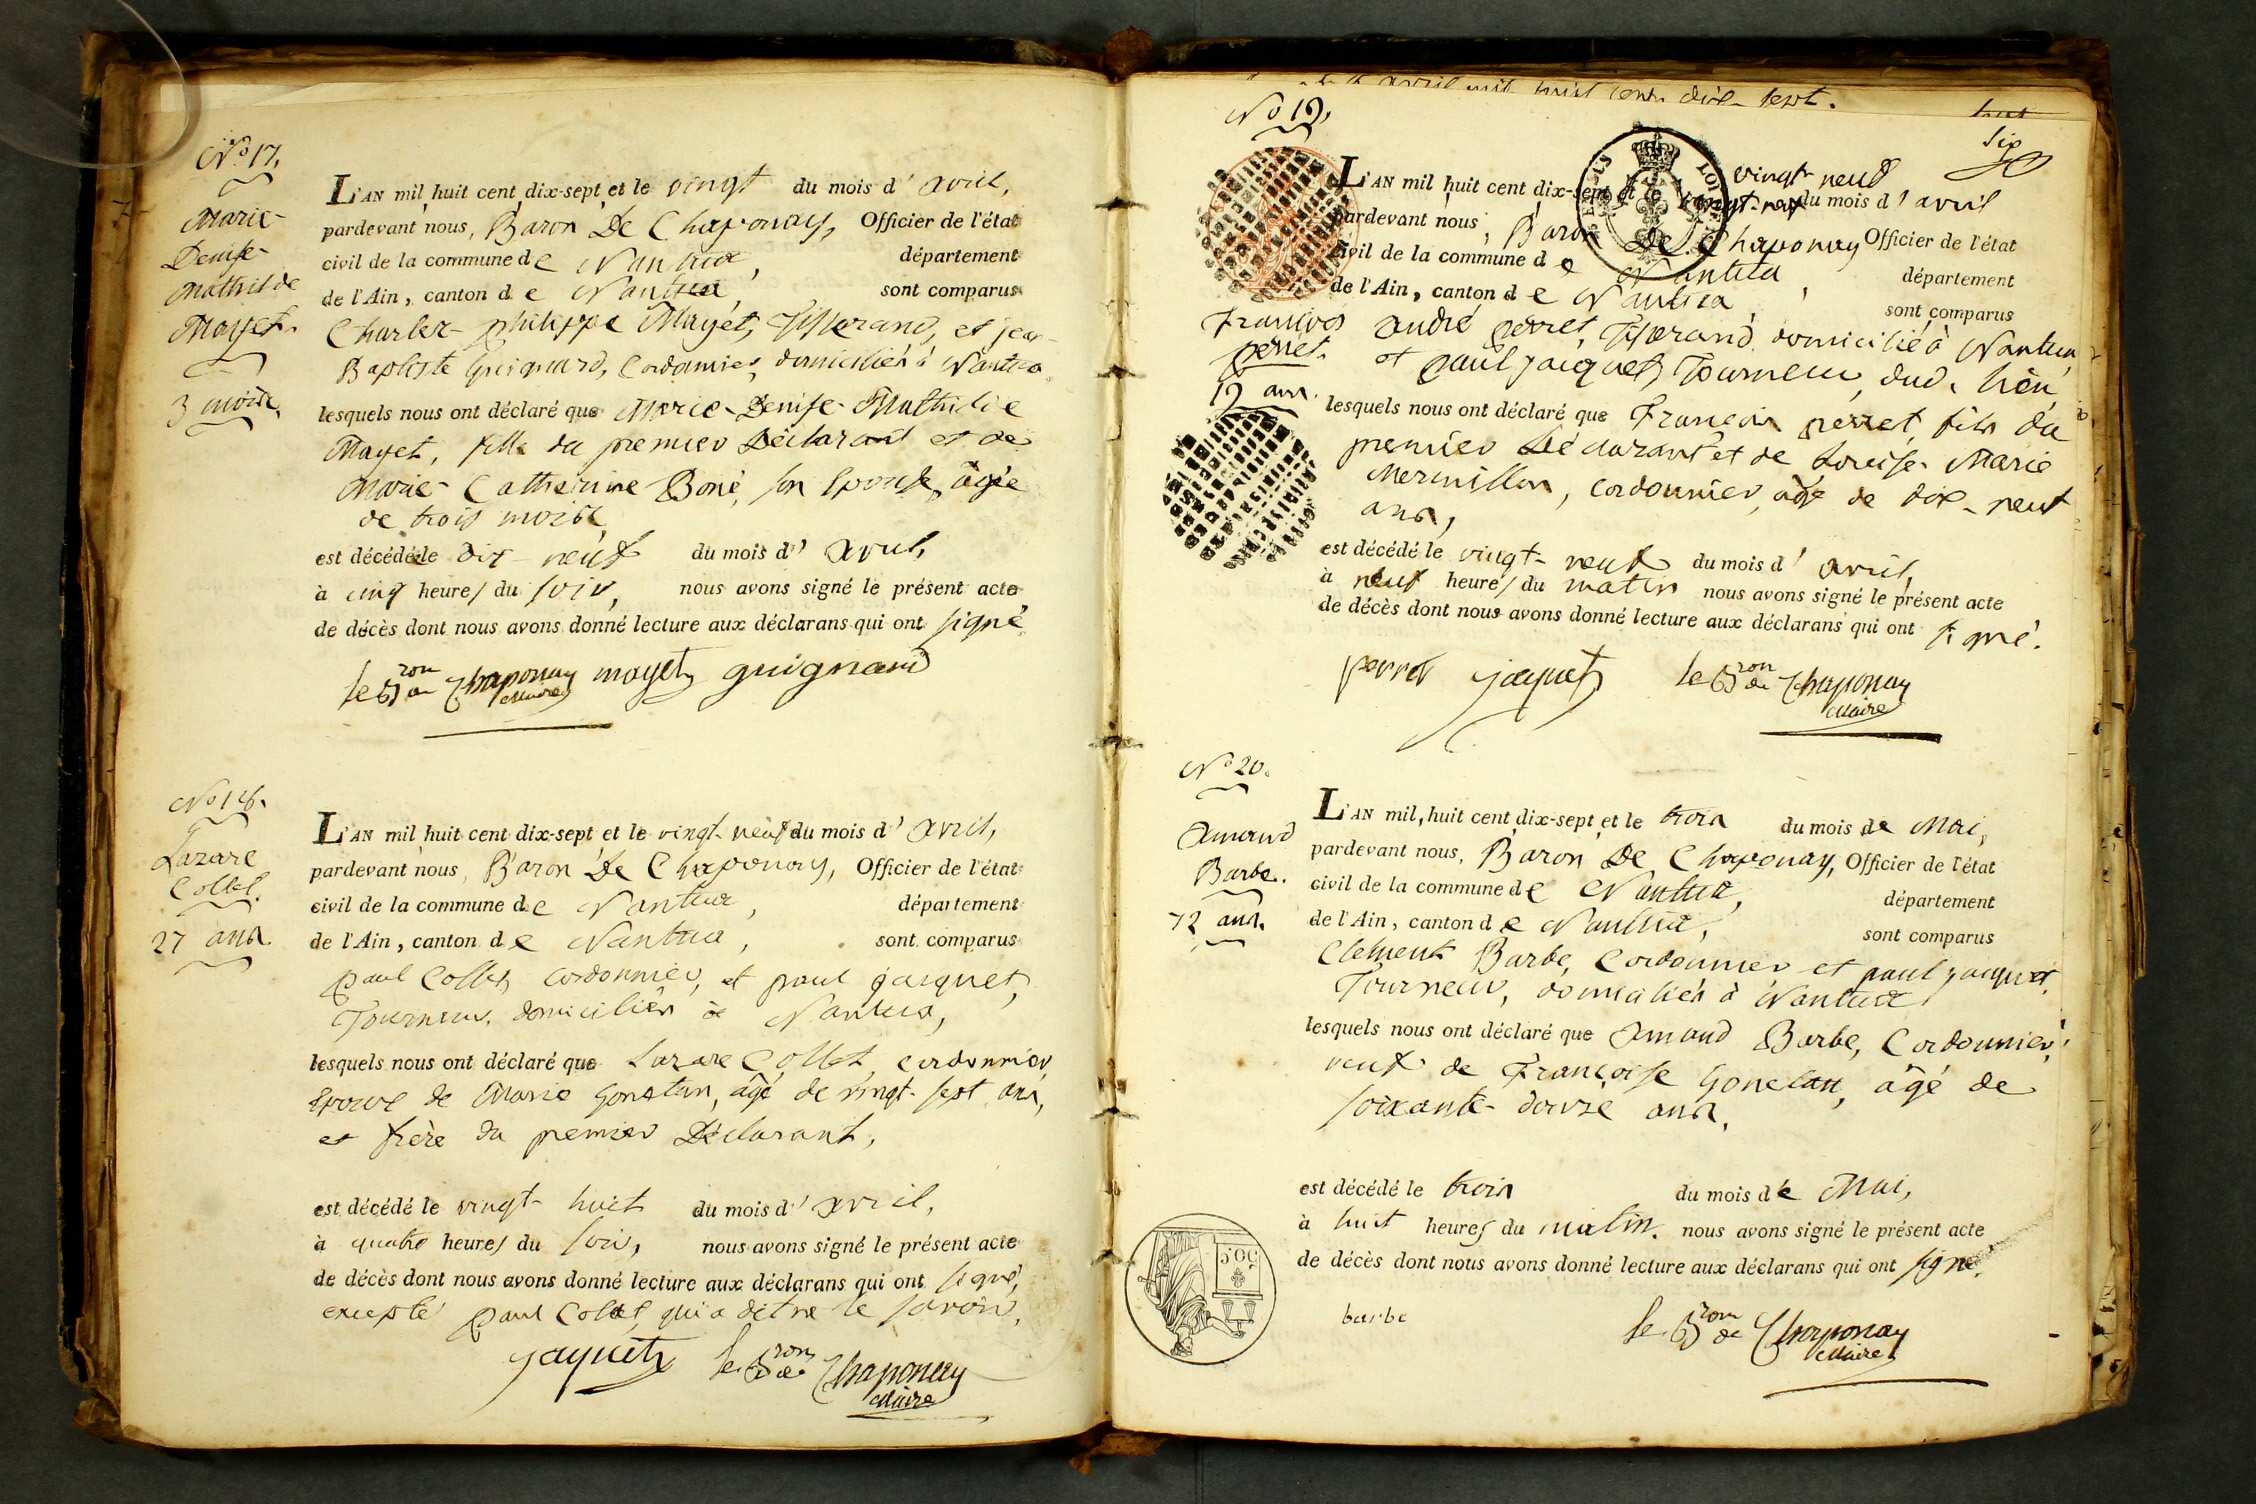 No 17.
Marie-
Denise-
Mathilde
Mayet.
3 mois.
L'AN mil huit cent dix-sept et le vingt du mois d' avril,
pardevant nous, Baron De Chaponay, Officier de l'état
civil de la commune de Nantua, département
de l'Ain, canton de Nantua, sont comparus
Charles-philippe Mayet, Tisserand, et jean-
Baptiste Guignard, Cordonnier, domiciliés à Nantua
lesquels nous ont déclaré que Marie-Denise-Mathilde
Mayet, fille du premier Déclarant et de
Marie-Catherine Boné, son Epouse, âgée
de trois mois
est décédée le dix-neuf du mois d' avril,
à cinq heures du soir, nous avons signé le présent acte
de décès dont nous avons donné lecture aux déclarans qui ont signé
le Bron de Chaponay mayet guignard
Maire
No 18.
Lazare
Collet.
27 ans.
L'AN mil huit cent dix-sept et le vingt-neuf du mois d' avril,
pardevant nous, Baron De Chaponay, Officier de l'état
civil de la commune de Nantua, département
de l'Ain, canton de Nantua, sont comparus
paul Collet, cordonnier, et paul jacquet,
Tourneur, domiciliés à Nantua,
lesquels nous ont déclaré que Lazare Collet, cordonnier,
Epoux de Marie Gonetan, âgé de vingt-sept ans,
et frère du premier Déclarant,
est décédé le vingt-huit du mois d' avril,
à quatre heures du soir, nous avons signé le présent acte
de décès dont nous avons donné lecture aux déclarans qui ont signé,
excepté paul Collet, qui a dit ne le savoir.
jaquet le Bron de Chaponay
Maire
avril mil huit cent dix-sept.
huit
six
No 19.
françois
perret.
19 ans.
L'AN mil huit cent dix-sept et le vingt-neuf du mois d' avril
pardevant nous, Baron De Chaponay Officier de l'état
civil de la commune de Nantua, département
de l'Ain, canton de Nantua, sont comparus
andré perret, Tisserand domicilié à Nantua,
et paul jacquet, Tourneur, dud. lieu,
lesquels nous ont déclaré que François perret, fils du
premier Déclarant et de Louise-Marie
Mermillon, cordonnier, âgé de dix-neuf
ans,
est décédé le vingt-neuf du mois d' avril,
à neuf heures du matin nous avons signé le présent acte
de décès dont nous avons donné lecture aux déclarans qui ont signé.
perret jaquet le Bron de Chaponay
Maire
No 20.
Amand
Barbe.
72 ans.
L'AN mil huit cent dix-sept et le trois du mois de Mai,
pardevant nous, Baron De Chaponay, Officier de l'état
civil de la commune de Nantua, département
de l'Ain, canton de Nantua, sont comparus
Clement Barbe, Cordonnier et paul jacquet,
Tourneur, domiciliés à Nantua
lesquels nous ont déclaré que Amand Barbe, Cordonnier,
veuf de Françoise Gonetan, âgé de
soixante-douze ans.
est décédé le trois du mois de Mai,
à huit heures du matin. nous avons signé le présent acte
de décès dont nous avons donné lecture aux déclarans qui ont signé.
barbe le Bron de Chaponay
Maire